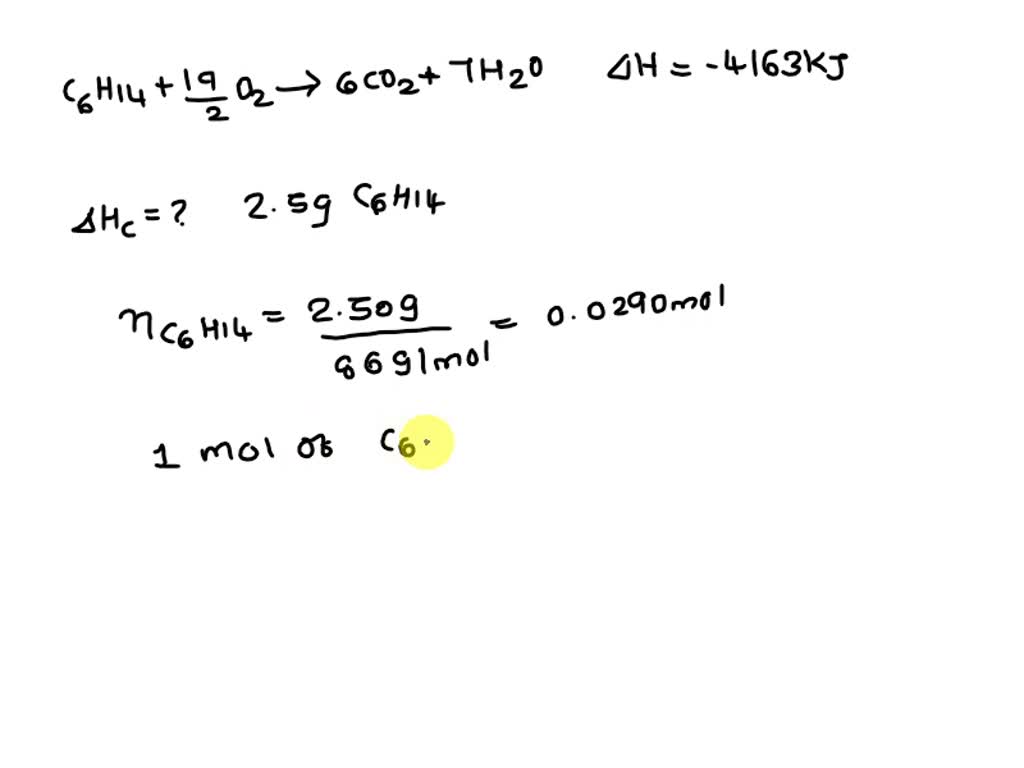 C6H14 + 19/2 O2 → 6CO2 + 7H2O ΔH = -4163KJ
ΔHc = ? 2.5g C6H14
nC6H14 = 2.50g / 86g/mol = 0.0290mol
1 mol of C6